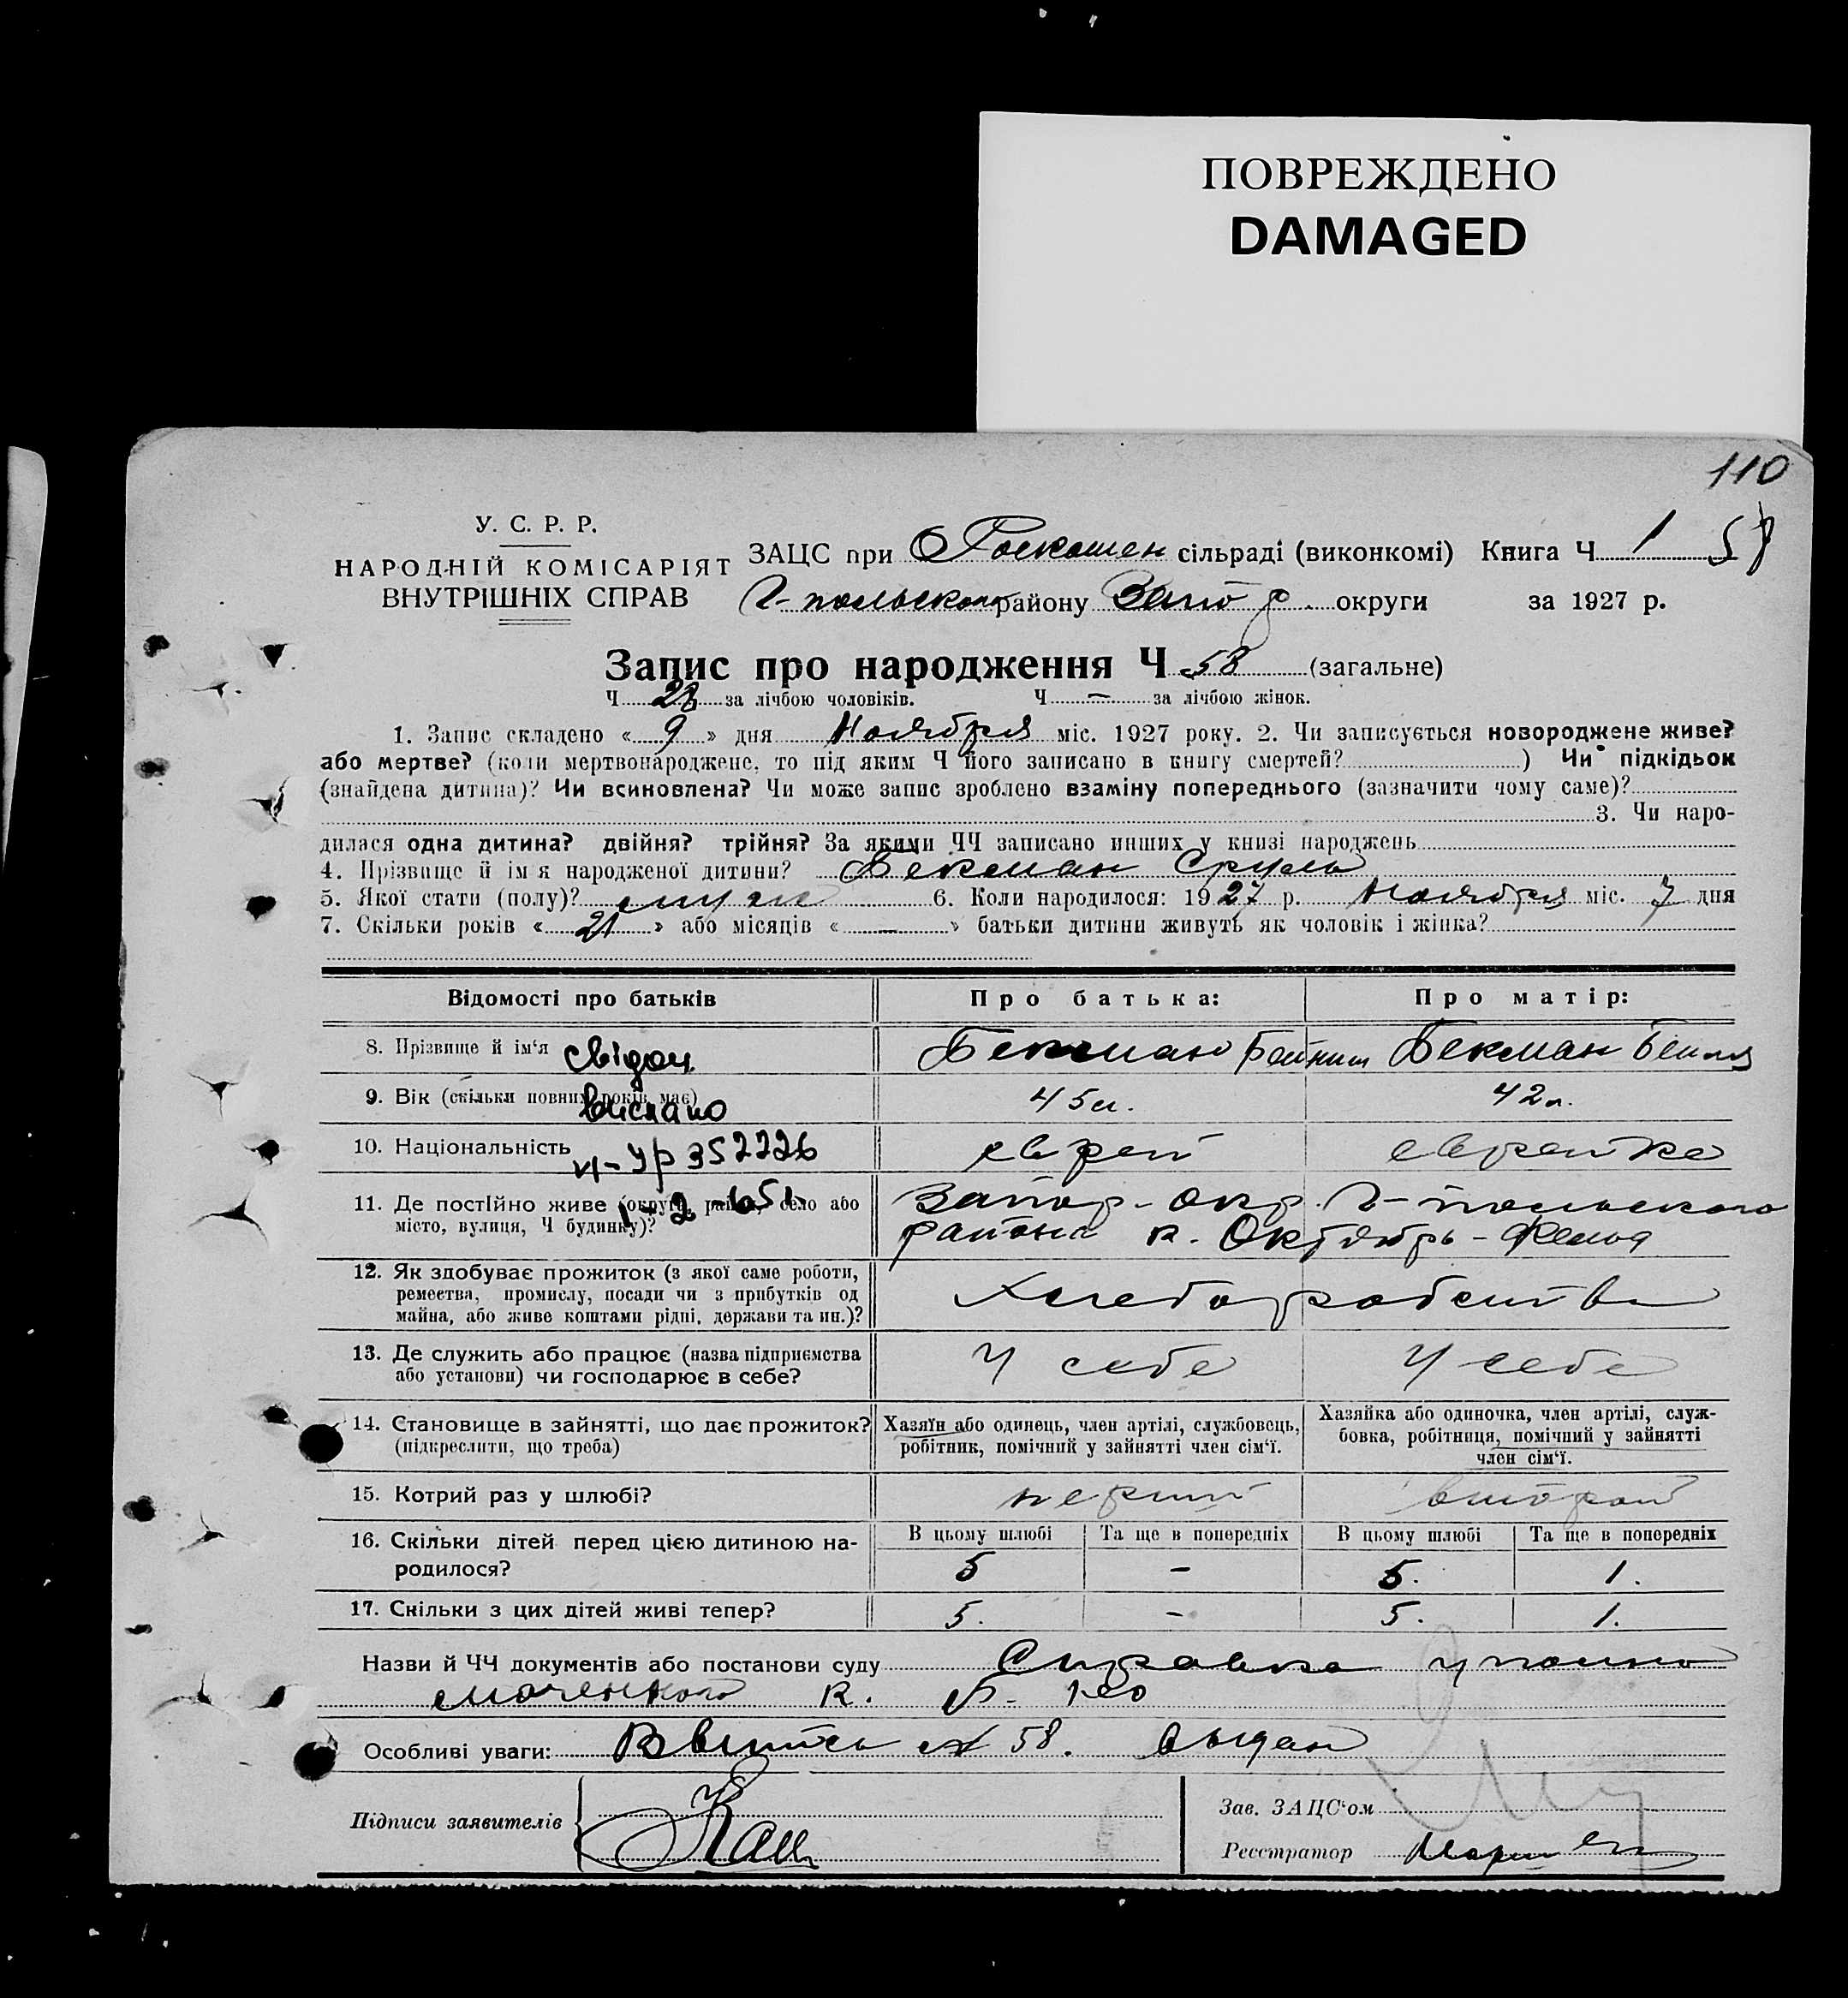 ПОВРЕЖДЕНО
DAMAGED
110
У. С. Р. Р.
НАРОДНІЙ КОМІСАРІЯТ
ВНУТРІШНІХ СПРАВ
ЗАЦС при сільраді (виконкомі) Книга Ч 1 58
Г-польского району Запор. округи за 1927 р.
Запис про народження Ч 58 (загальне)
Ч 28 за лічбою чоловіків. Ч — за лічбою жінок.
1. Запис складено « 9 » дня Ноября міс. 1927 року. 2. Чи записується новороджене живе?
або мертве? (коли мертвонароджене, то під яким Ч його записано в книгу смертей? ) Чи підкідьок
(знайдена дитина)? Чи всиновлена? Чи може запис зроблено взаміну попереднього (зазначити чому саме)?
3. Чи наро-
дилася одна дитина? двійня? трійня? За якими ЧЧ записано инших у книзі народжень
4. Прізвище й ім'я народженої дитини? Бекман Сруль
5. Якої стати (полу)? муж 6. Коли народилося: 1927 р. Ноября міс. 7 дня
7. Скільки років « 21 » або місяців « — » батьки дитини живуть як чоловік і жінка?
Відомості про батьків Про батька: Про матір:
8. Прізвище й ім'я свідоц Бекман Бейниш Бекман Бейля
9. Вік (скільки повних років має) вислано 45 л. 42 л.
10. Національність 352226 еврей еврейка
11. Де постійно живе (округа, район, село або
місто, вулиця, Ч будинку)?
Запор-окр. Г-польского
района к. Октябрь-Фельд
12. Як здобуває прожиток (з якої саме роботи,
ремества, промислу, посади чи з прибутків од
майна, або живе коштами рідні, держави та ин.)?
Хлеборобство
13. Де служить або працює (назва підприємства
або установи) чи господарює в себе?
У себе У себе
14. Становище в зайнятті, що дає прожиток?
(підкреслити, що треба)
Хазяїн або одинець, член артілі, службовець,
робітник, помічний у зайнятті член сім'ї.
Хазяйка або одиночка, член артілі, служ-
бовка, робітниця, помічний у зайнятті
член сім'ї.
15. Котрий раз у шлюбі? второй
16. Скільки дітей перед цією дитиною на-
родилося?
В цьому шлюбі Та ще в попередніх В цьому шлюбі Та ще в попередніх
5 - 5. 1.
17. Скільки з цих дітей живі тепер? 5. - 5. 1.
Назви й ЧЧ документів або постанови суду Справка уполно
моченного к.
Особливі уваги: Квитсь № 58. выдан
Підписи заявителів
Зав. ЗАЦС'ом
Реєстратор